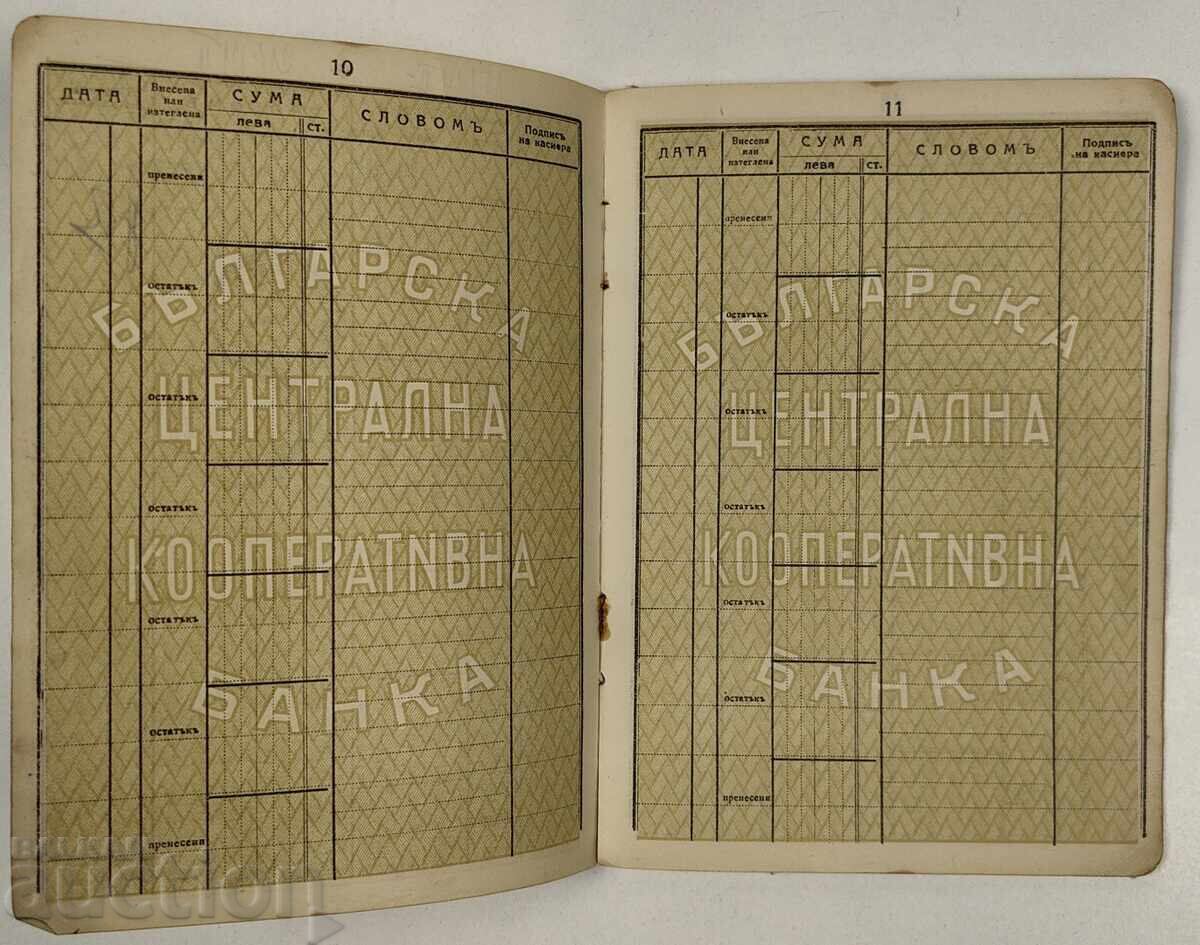 10
ДАТА
Внесена
или
изтеглена
СУМА
лева
ст.
СЛОВОМЪ
Подписъ
на касиера
пренесени
остатъкъ
остатъкъ
остатъкъ
остатъкъ
остатъкъ
пренесени
БЪЛГАРСКА
ЦЕНТРАЛНА
КООПЕРАТИВНА
БАНКА
11
ДАТА
Внесена
или
изтеглена
СУМА
лева
ст.
СЛОВОМЪ
Подписъ
на касиера
пренесени
остатъкъ
остатъкъ
остатъкъ
остатъкъ
остатъкъ
пренесени
БЪЛГАРСКА
ЦЕНТРАЛНА
КООПЕРАТИВНА
БАНКА
BALKAN
auction